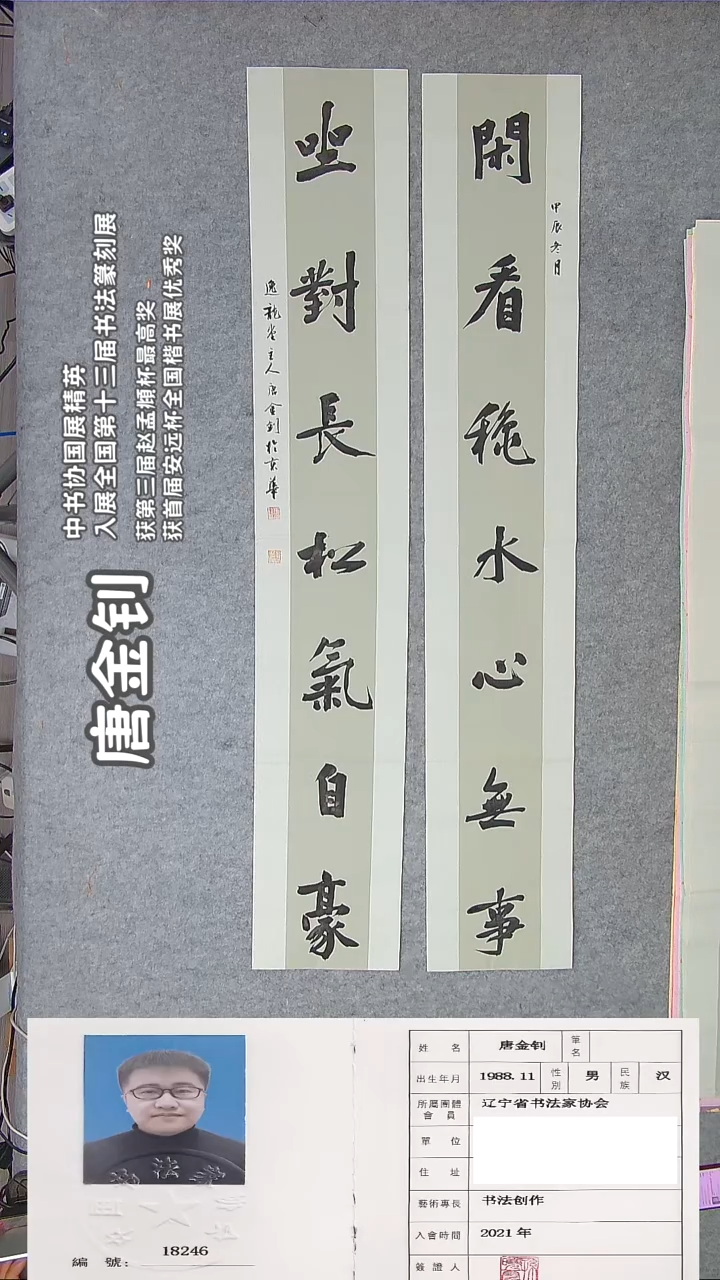 閑看穐水心無事
甲辰冬月
坐對長松氣自豪
逸龍堂主人唐金钊於京華
唐金钊
中书协国展精英
入展全国第十三届书法篆刻展
获第三届赵孟頫杯最高奖
获首届安远杯全国楷书展优秀奖
編 號: 18246
姓 名 唐金钊 筆名
出生年月 1988.11 性別 男 民族 汉
所屬團體會員 辽宁省书法家协会
單 位
住 址
藝術專長 书法创作
入會時間 2021年
簽證人